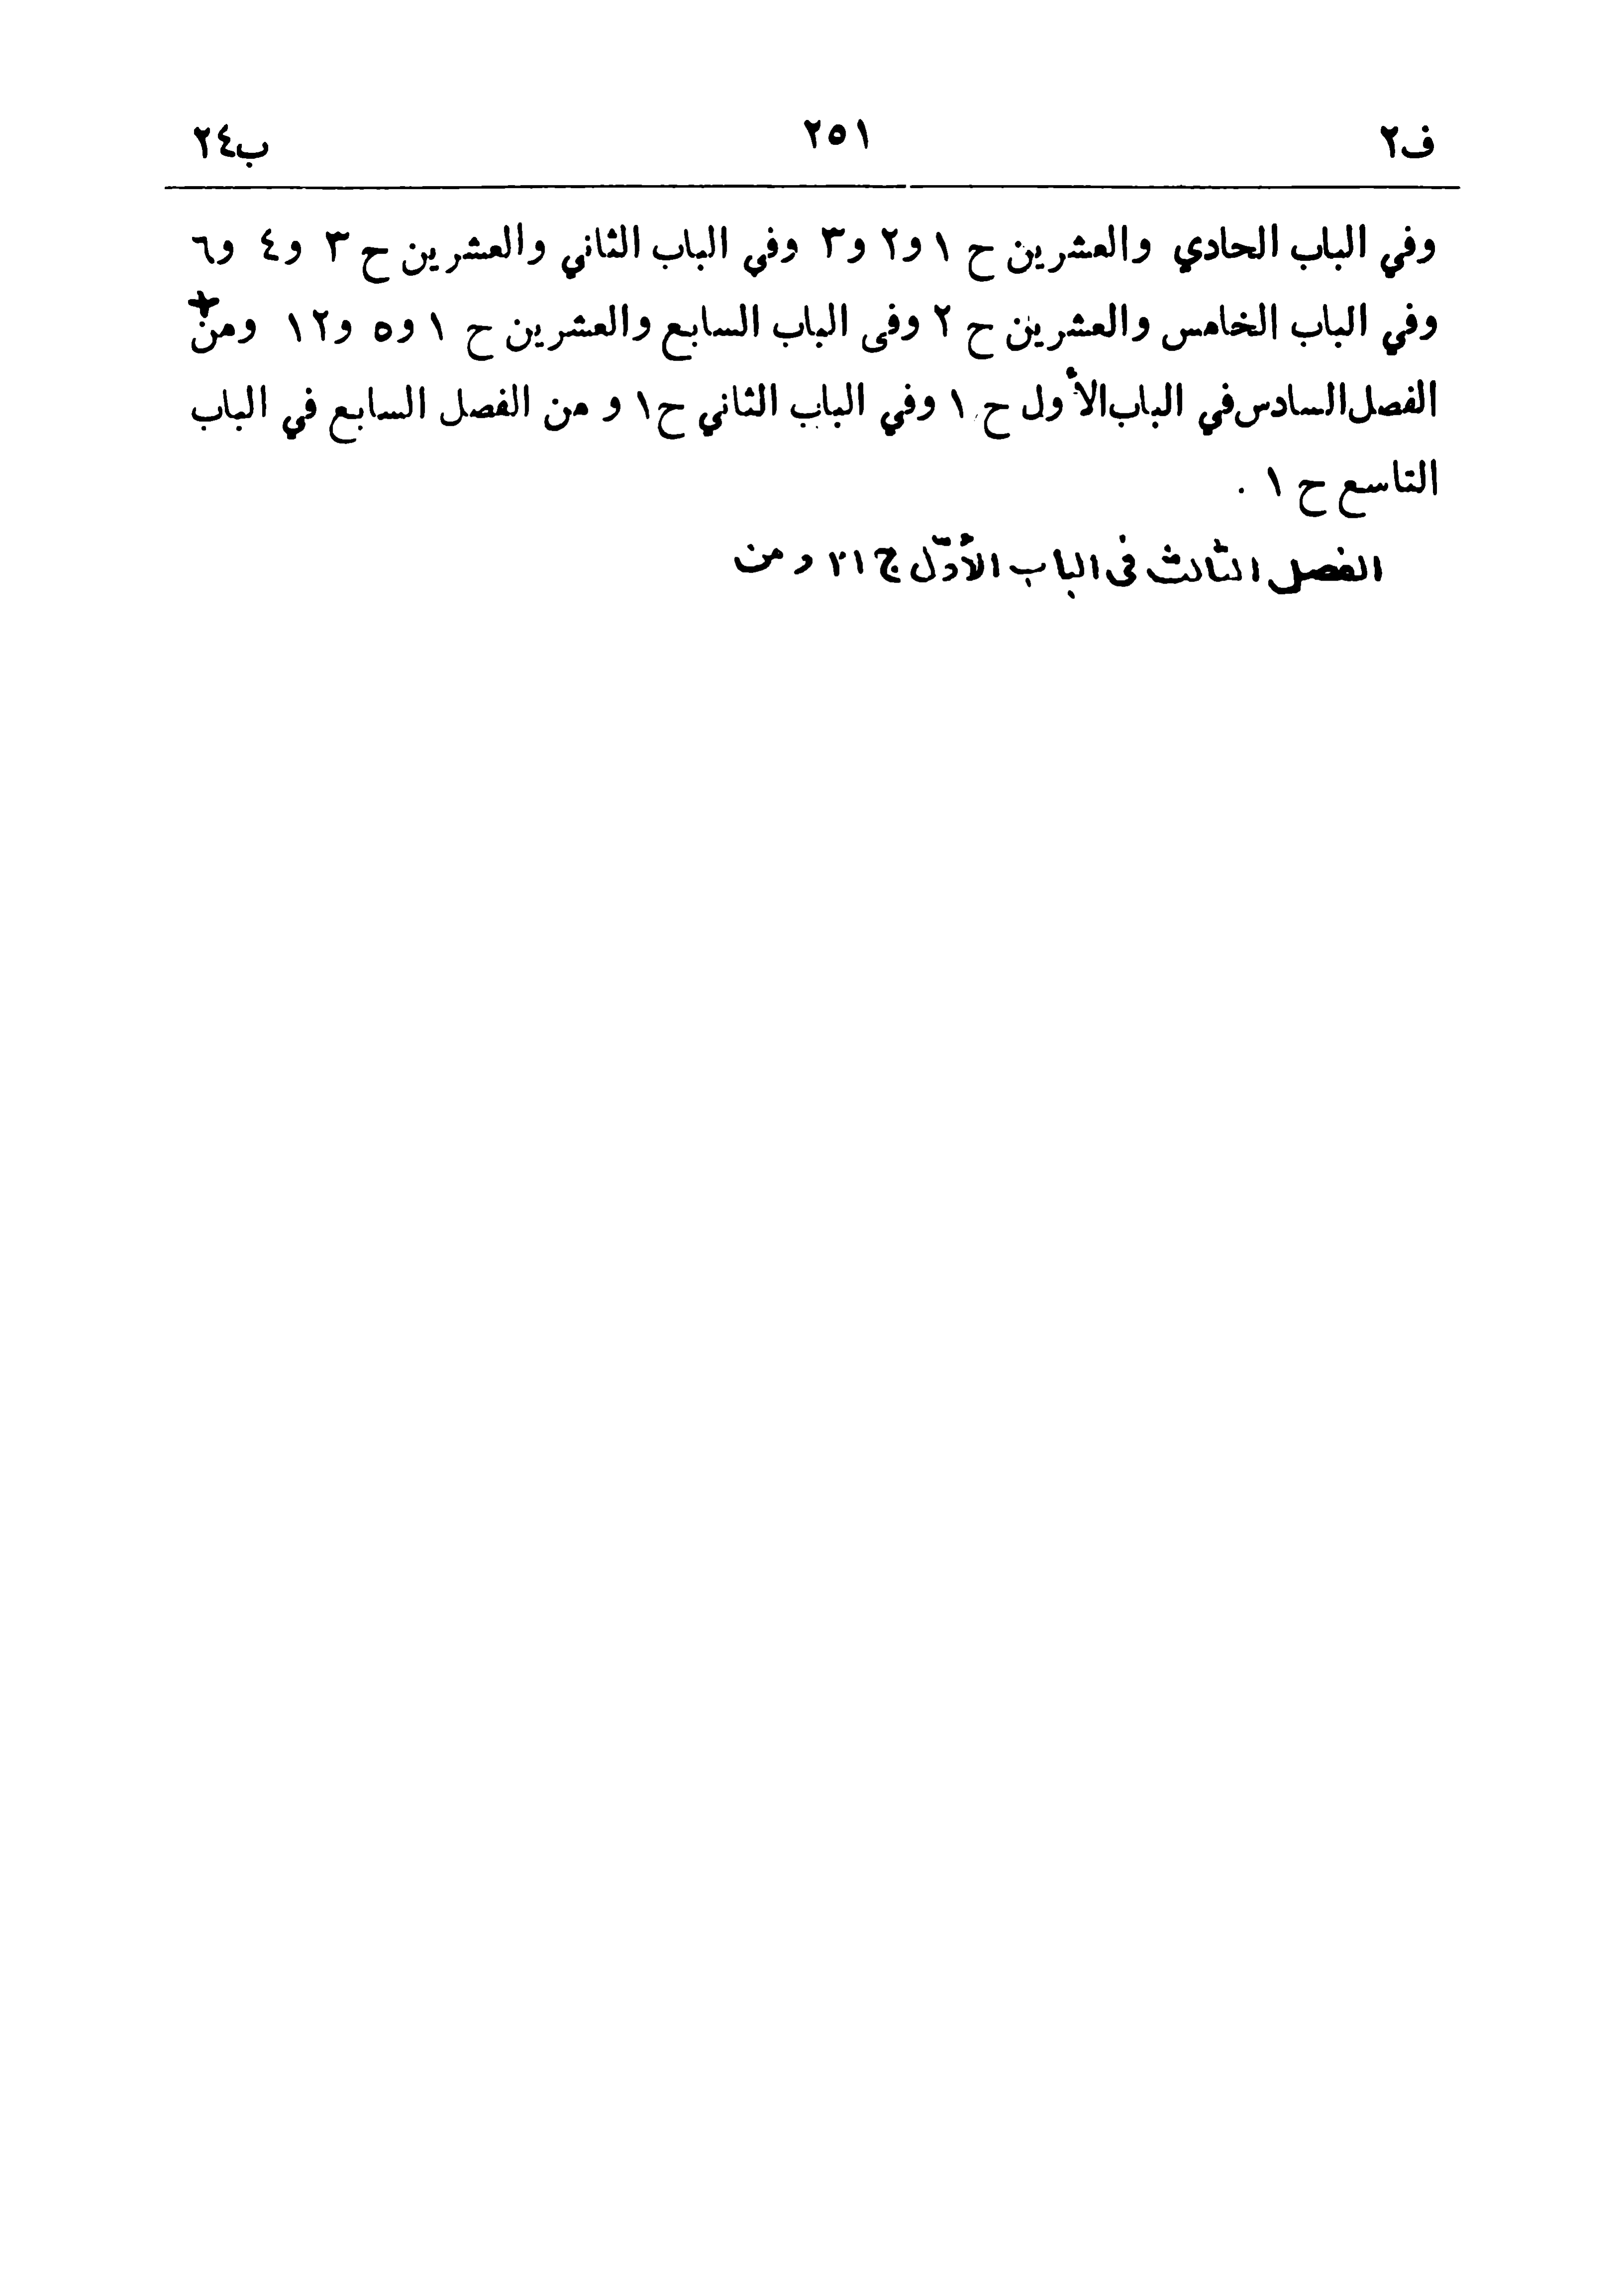 ف٢ ٢٥١ ب٢٤
وفي الباب الحادي والعشرين ح ١ و٢ و٣ وفي الباب الثاني والعشرين ح ٣ و٤ و٦
وفي الباب الخامس والعشرين ح ٢ وفى الباب السابع والعشرين ح ١ و٥ و١٢ ومن+
الفصل السادس في الباب الأول ح ١ وفي الباب الثاني ح١ و من الفصل السابع في الباب
التاسع ح ١ .
الفصل الثالث فى الباب الأوّل ح ٢١ و من